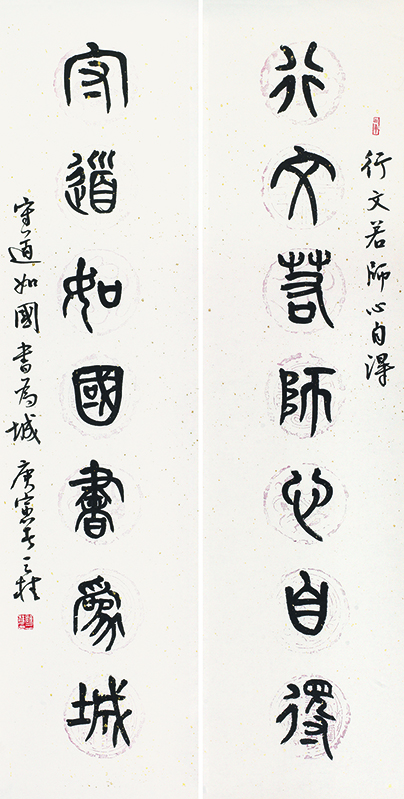 行文若師心自得
行文若師心自得
守道如國書為城
守道如國書為城 庚寅